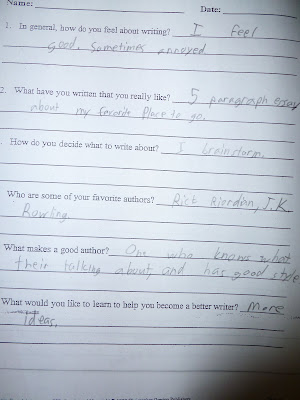 Name: Date:
1. In general, how do you feel about writing? I feel
good, Sometimes annoyed
2. What have you written that you really like? 5 paragraph essay
about my favorite Place to go.
How do you decide what to write about? I brainstorm.
Who are some of your favorite authors? Rick Riordan, J.K.
Rowling
What makes a good author? One who knows what
their talking about, and has good style
What would you like to learn to help you become a better writer? More
Ideas.